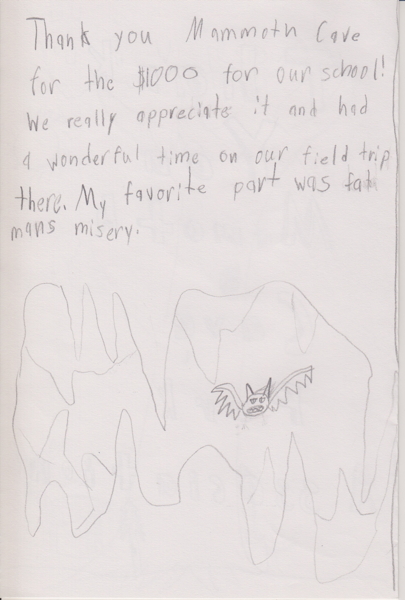 Thank you Mammoth Cave
for the $1000 for our school!
We really appreciate it and had
a wonderful time on our field trip
there. My favorite part was fat
mans misery.